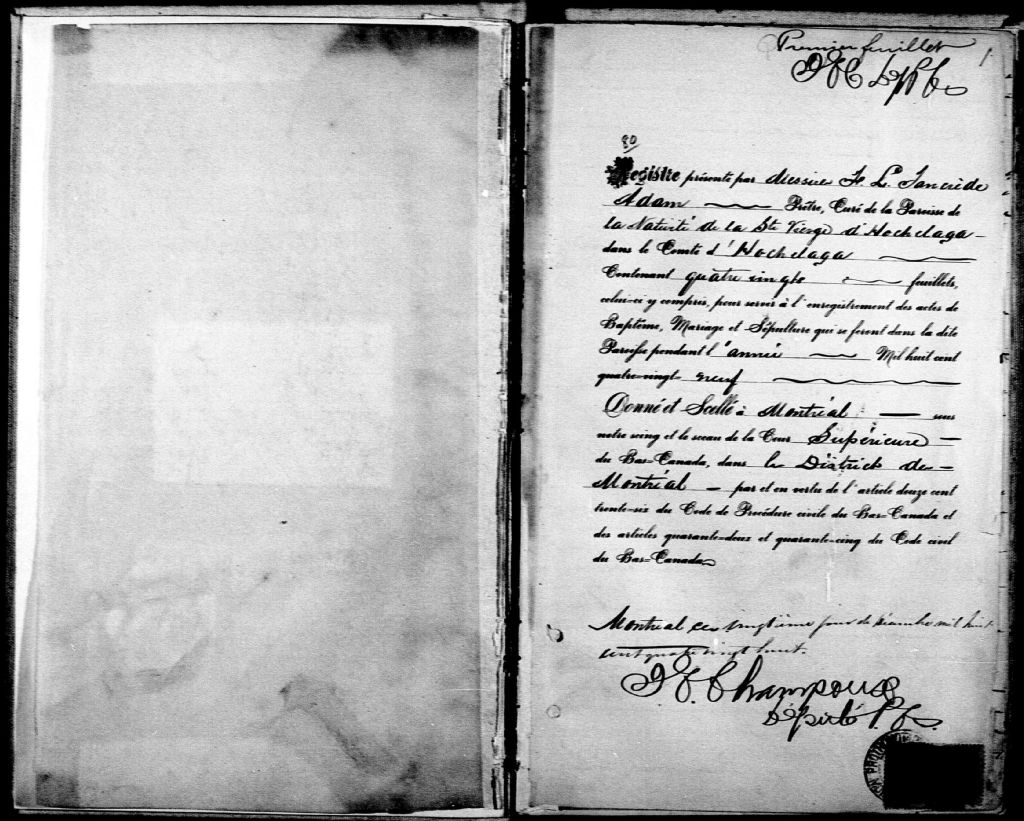 Premier feuillet
1
80
Registre présenté par Messire F. L. Tancrède
Adam Prêtre, Curé de la Paroisse de
la Nativité de la Ste Vierge d'Hochelaga
dans le Comté d'Hochelaga
Contenant quatre vingts feuillets,
celui-ci y compris, pour servir à l'enregistrement des actes de
Baptême, Mariage et Sépulture qui se feront dans la dite
Paroisse pendant l'année Mil huit cent
quatre-vingt neuf
Donné et Scellé à Montréal sous
notre seing et le sceau de la Cour Supérieure
du Bas-Canada, dans le District de
Montréal par et en vertu de l'article douze cent
trente-six du Code de Procédure civile du Bas-Canada et
des articles quarante-deux et quarante-cinq du Code civil
du Bas-Canada
Montréal ce vingtième jour de décembre mil huit
cent quatre vingt huit.
Champoux
Député P.